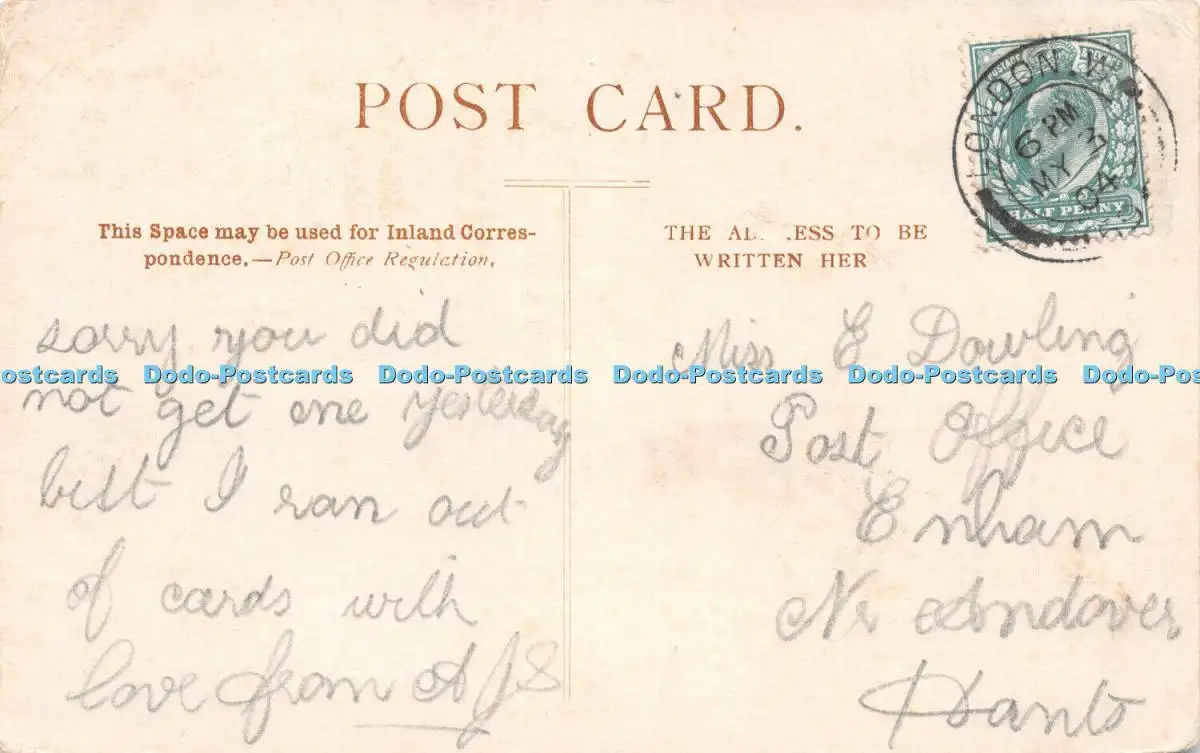 POST CARD.
This Space may be used for Inland Corres-
pondence.—Post Office Regulation.
sorry you did
not get one yesterday
but I ran out
of cards with
love from A J S
THE AD ESS TO BE
WRITTEN HER
Miss E Dowling
Post Office
Enham
Nr Andover
Hants
LONDON. W
6 PM
MY 3
04
HALF PENNY
ostcards Dodo-Postcards Dodo-Postcards Dodo-Postcards Dodo-Postcards Dodo-Pos